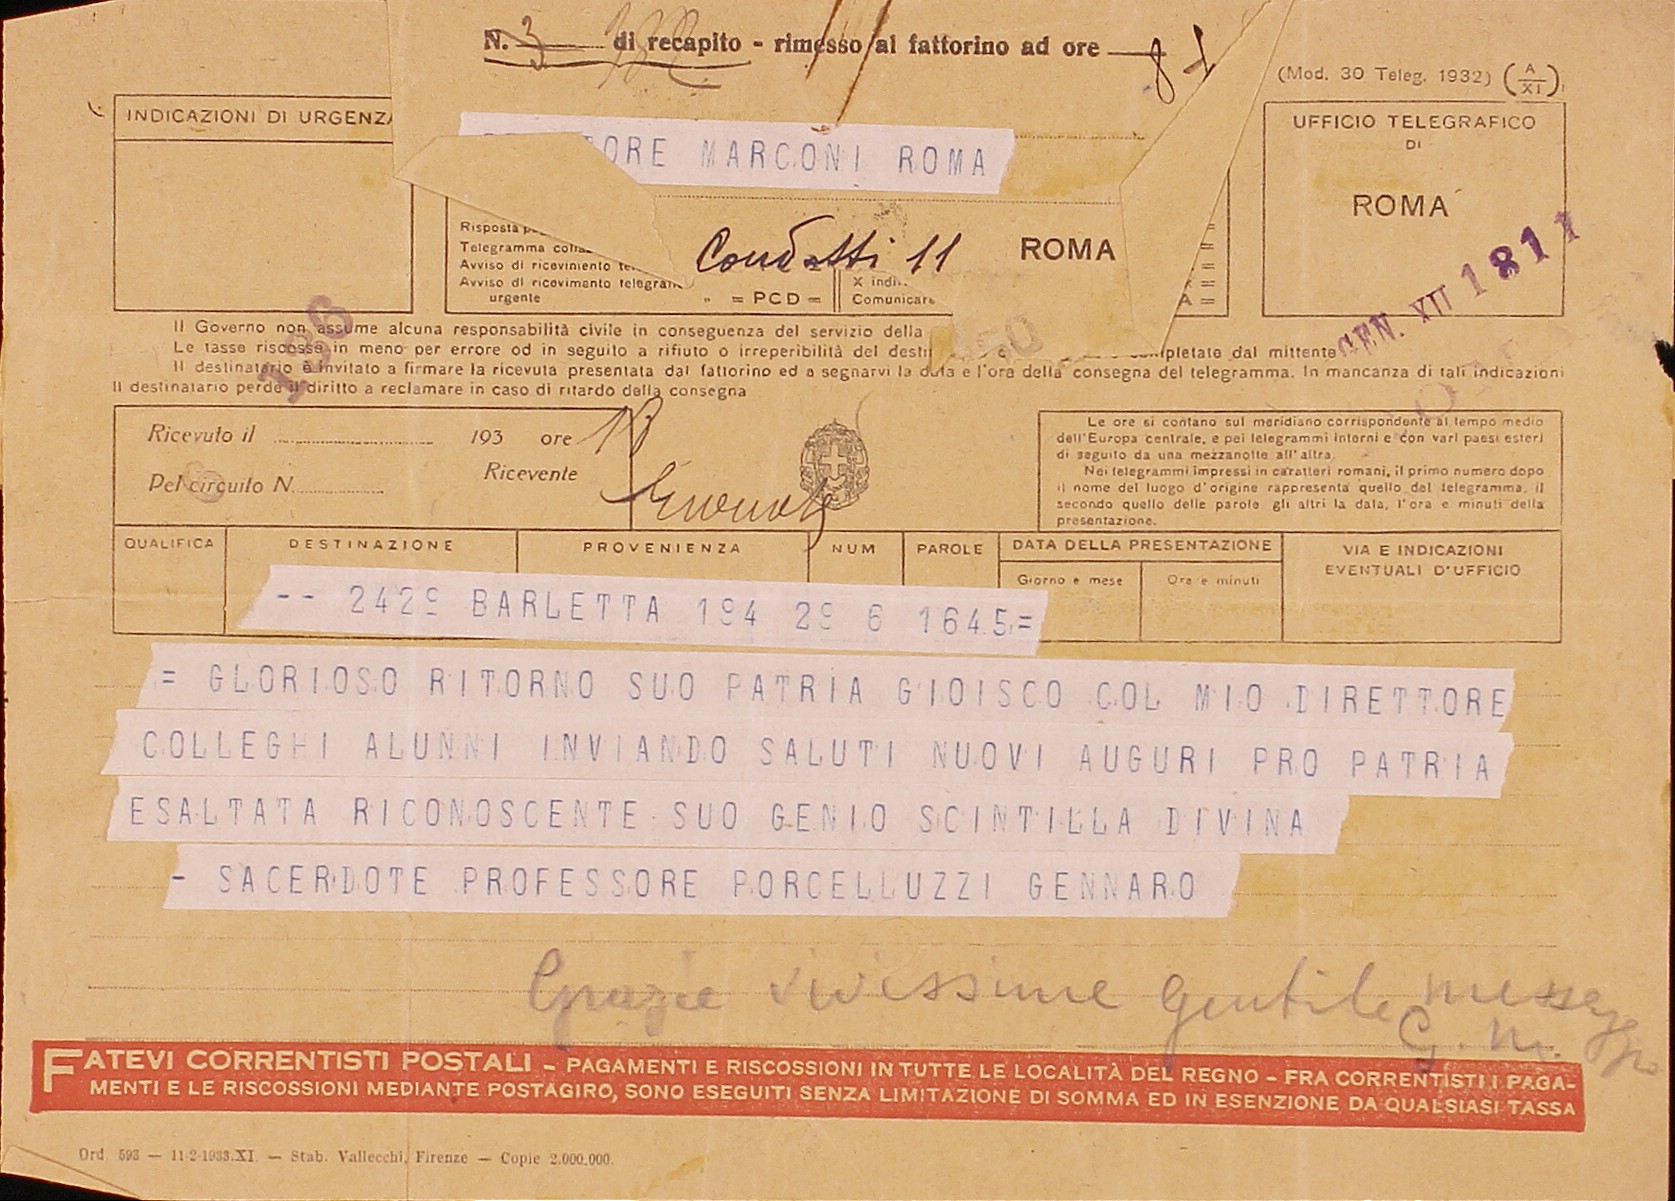 N. 3 di recapito - rimesso al fattorino ad ore 8 1
(Mod. 30 Teleg. 1932) (A/XI)
INDICAZIONI DI URGENZA
ORE MARCONI ROMA
UFFICIO TELEGRAFICO
DI
ROMA
Risposta
Telegramma
Avviso di ricevimento
Avviso di ricevimento telegra
urgente
= PCD =
X indi
Comunicare
A =
Condotti 11 ROMA
GEN. XII 1811
Il Governo non assume alcuna responsabilità civile in conseguenza del servizio della
Le tasse riscosse in meno per errore od in seguito a rifiuto o irreperibilità del desti completate dal mittente
Il destinatario è invitato a firmare la ricevuta presentata dal fattorino ed a segnarvi la data e l'ora della consegna del telegramma. In mancanza di tali indicazioni
Il destinatario perde il diritto a reclamare in caso di ritardo della consegna
Ricevuto il 193 ore 18
Pel circuito N. Ricevente
Le ore si contano sul meridiano corrispondente al tempo medio
dell'Europa centrale, e pei telegrammi interni e con vari paesi esteri
di seguito da una mezzanotte all'altra.
Nei telegrammi impressi in caratteri romani, il primo numero dopo
il nome del luogo d'origine rappresenta quello del telegramma, il
secondo quello delle parole gli altri la data, l'ora e minuti della
presentazione.
QUALIFICA DESTINAZIONE PROVENIENZA NUM PAROLE DATA DELLA PRESENTAZIONE VIA E INDICAZIONI
EVENTUALI D'UFFICIO
Giorno e mese Ora e minuti
-- 2429 BARLETTA 194 29 6 1645=
= GLORIOSO RITORNO SUO PATRIA GIOISCO COL MIO DIRETTORE
COLLEGHI ALUNNI INVIANDO SALUTI NUOVI AUGURI PRO PATRIA
ESALTATA RICONOSCENTE SUO GENIO SCINTILLA DIVINA
- SACERDOTE PROFESSORE PORCELLUZZI GENNARO
Grazie vivissime gentile messaggio
G. M.
FATEVI CORRENTISTI POSTALI - PAGAMENTI E RISCOSSIONI IN TUTTE LE LOCALITÀ DEL REGNO - FRA CORRENTISTI I PAGA-
MENTI E LE RISCOSSIONI MEDIANTE POSTAGIRO, SONO ESEGUITI SENZA LIMITAZIONE DI SOMMA ED IN ESENZIONE DA QUALSIASI TASSA
Ord. 593 — 11-2-1933.XI. — Stab. Vallecchi, Firenze — Copie 2.000.000.